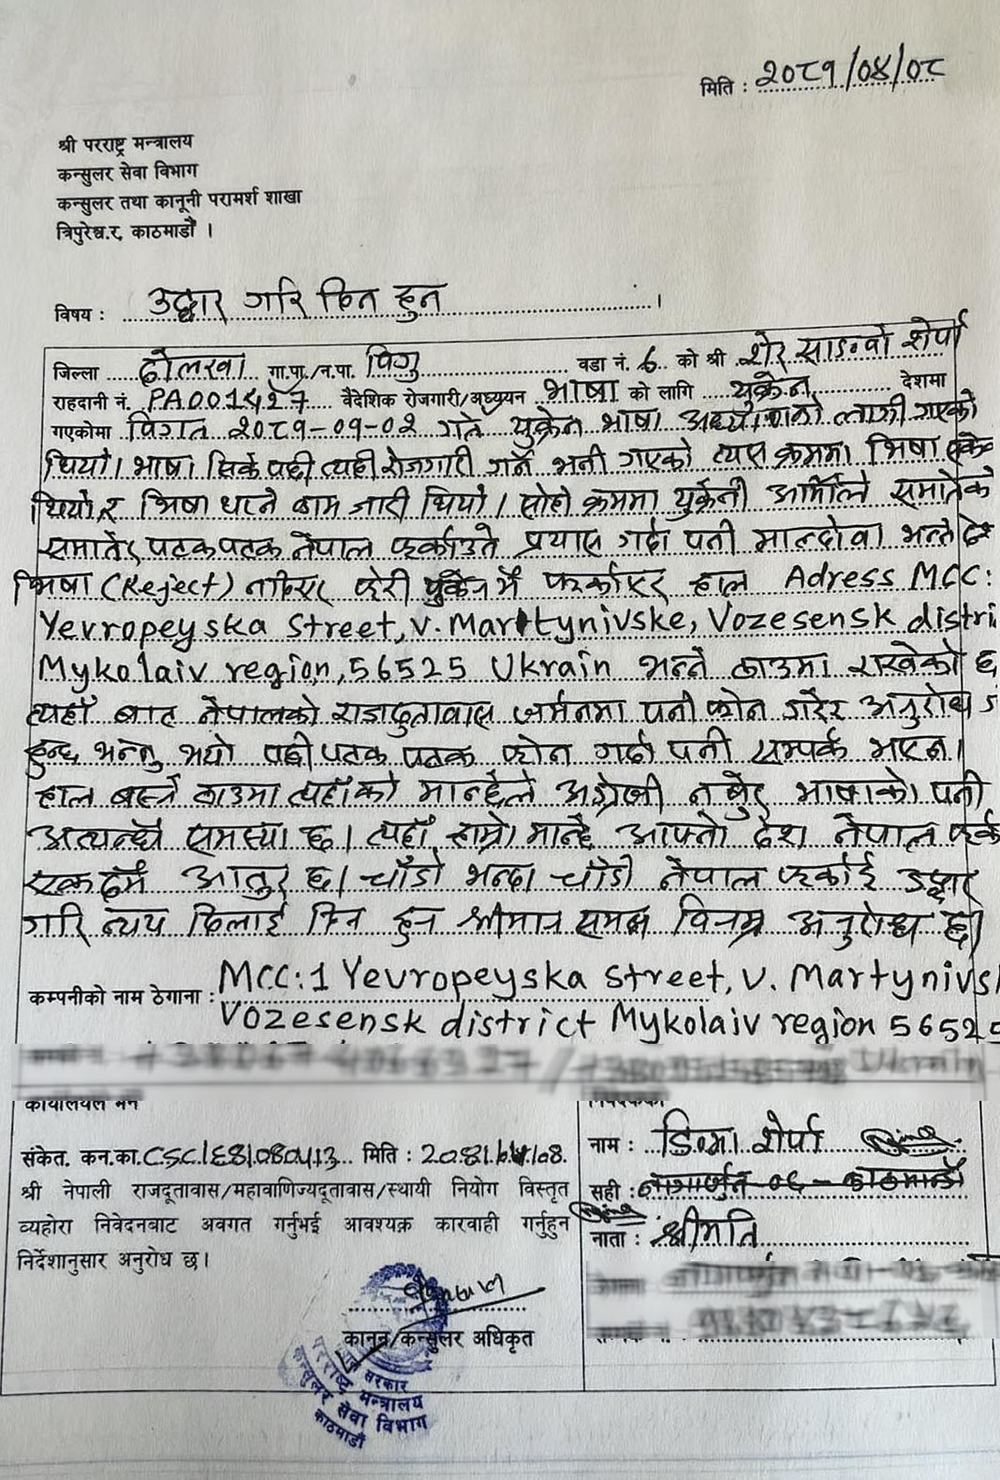 मिति : २०८१/०४/०८
श्री परराष्ट्र मन्त्रालय
कन्सुलर सेवा विभाग
कन्सुलर तथा कानूनी परामर्श शाखा
त्रिपुरेश्व.र, काठमाडौं ।
विषय : उद्धार गरि दिन हुन ।
जिल्ला दोलखा गा.पा./न.पा. विगु वडा नं. 6 को श्री शेर साङवो शेर्पा
राहदानी नं. PA001427 वैदेशिक रोजगारी/अध्ययन भाषा को लागि युक्रेन देशमा
गएकोमा विगत २०८१-०१-०२ गते युक्रेन भाषा लागी गएको
थियो। भाषा सिके पछी त्यही रोजगारी गर्ने भनी गएको त्यस क्रममा भिषा
थियो र भिषा थप्ने काम जारी थियो। सोही क्रममा युक्रेनी आर्मीले समातेको
समातेर पटक पटक नेपाल फर्काउने प्रयास गर्दा पनी माल्दोवा भन्ने
भिषा (Reject) फेरी युक्रेनमै फर्काएर हाल Adress MCC:
Yevropeyska Street, V. Martynivske, Vozesensk distri
Mykolaiv region, 56525 Ukrain भन्ने ठाउमा राखेको छ
त्यहाँ बाट नेपालको राजदुतावास जर्मनमा पनी फोन गरेर अनुरोध
हुन्छ भन्नु भयो पछी पटक पटक फोन गर्दा पनी सम्पर्क भएन।
हाल बस्ने ठाउमा त्यहाँको मान्छेले अंग्रेजी नबुझ्ने भाषाको पनी
अत्यन्तै समस्या छ। त्यहाँ हाम्रो मान्छे आफ्नो देश नेपाल फर्क
एकदमै आतुर छ। चाँडो भन्दा चाँडो नेपाल फर्काई उद्धार
गरि न्याय दिलाई दिन हुन श्रीमान समक्ष विनम्र अनुरोध छ।
कम्पनीको नाम ठेगाना : MCC:1 Yevropeyska Street, V. Martynivs
Vozesensk district Mykolaiv region 56525
कार्यालयले भर्ने
निवेदकको
संकेत. कन.का. CSC/ES/080413 मिति : 2081/04/08.
श्री नेपाली राजदूतावास/महावाणिज्यदूतावास/स्थायी नियोग विस्तृत
व्यहोरा निवेदनबाट अवगत गर्नुभई आवश्यक्र कारवाही गर्नुहुन
निर्देशानुसार अनुरोध छ।
नाम : डिमा शेर्पा
सही : नागार्जुन-०६-काठमाडौं
नाता : श्रीमति
कानून/कन्सुलर अधिकृत
सरकार
परराष्ट्र मन्त्रालय
कन्सुलर सेवा विभाग
काठमाडौं